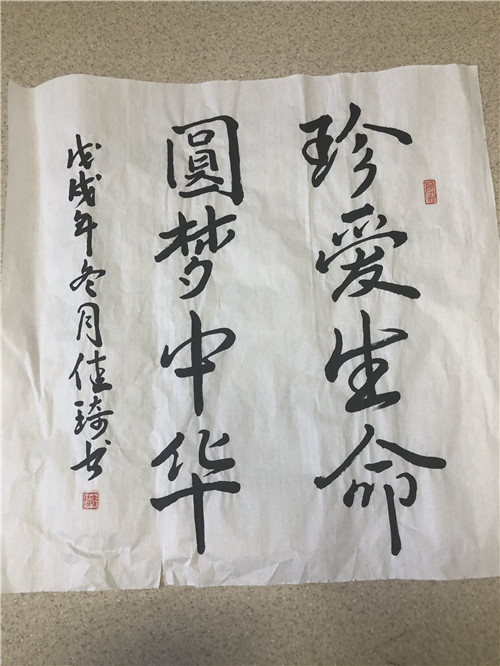 珍爱生命
圆梦中华
戊戌年冬月佳琦书